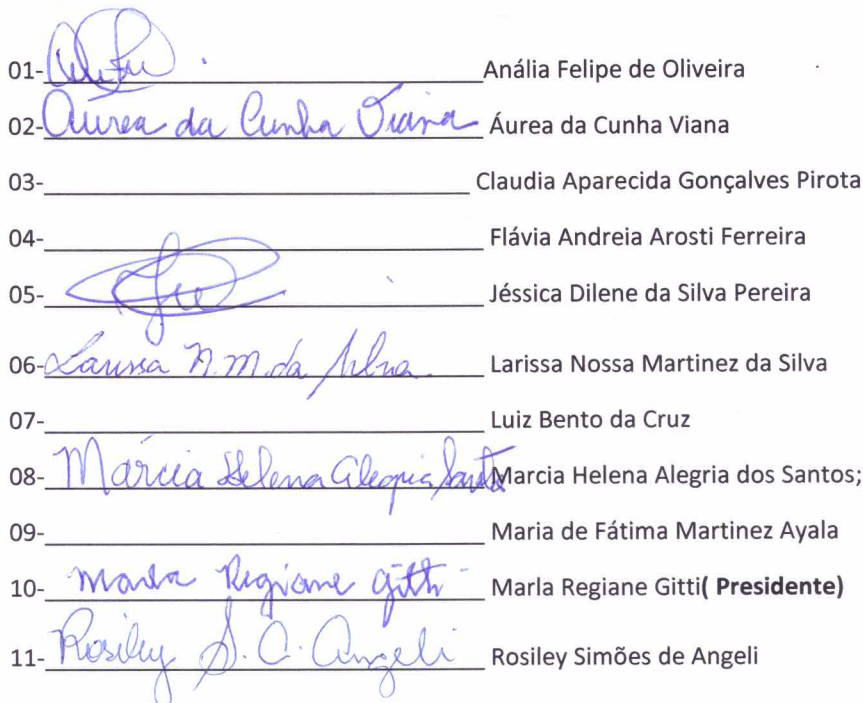 01- Anália Felipe de Oliveira
02- Áurea da Cunha Viana Áurea da Cunha Viana
03- Claudia Aparecida Gonçalves Pirota
04- Flávia Andreia Arosti Ferreira
05- Jéssica Dilene da Silva Pereira
06- Larissa N. M. da Silva. Larissa Nossa Martinez da Silva
07- Luiz Bento da Cruz
08- Márcia Helena Alegria Santos Marcia Helena Alegria dos Santos;
09- Maria de Fátima Martinez Ayala
10- Marla Regiane Gitti Marla Regiane Gitti( Presidente)
11- Rosiley S. C. Angeli Rosiley Simões de Angeli